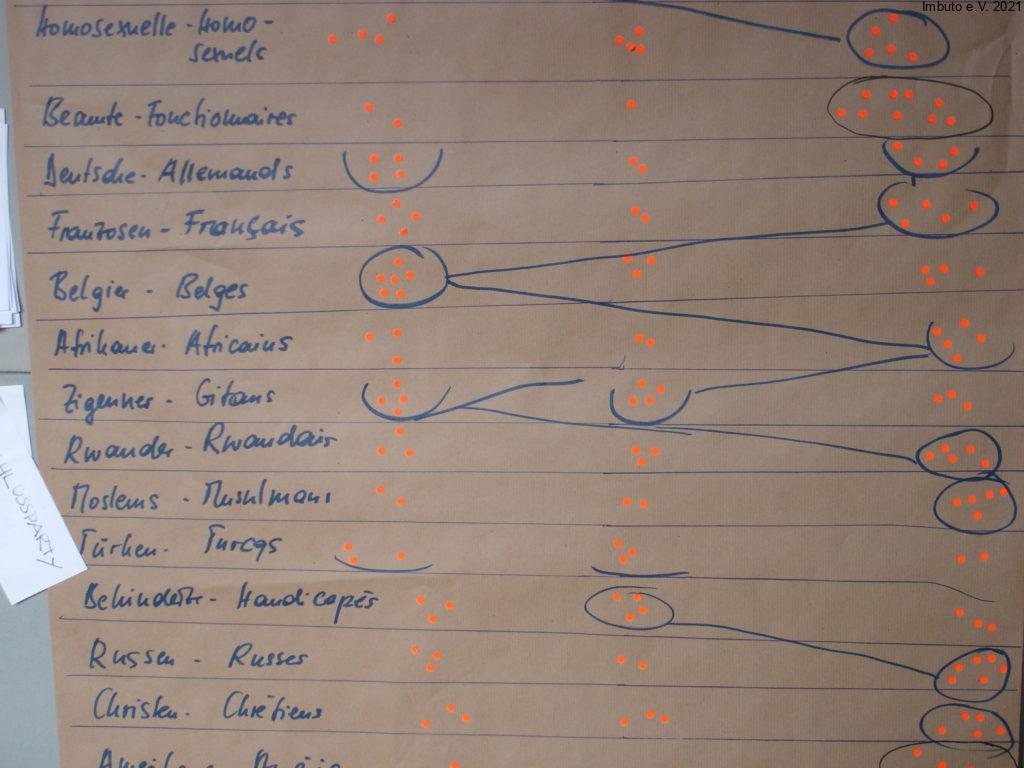 Imbuto e.V. 2021
Homosexuelle - Homo-
sexuels
Beamte - Fonctionnaires
Deutsche - Allemands
Franzosen - Français
Belgier - Belges
Afrikaner - Africains
Zigeuner - Gitans
Rwander - Rwandais
Moslems - Musulmans
HLUSSPARTY
Türken - Turcqs
Behinderte - Handicapés
Russen - Russes
Christen - Chrétiens